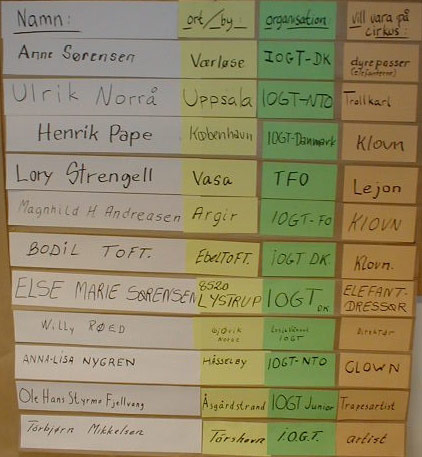 Namn: ort/by: organisation vill vara på cirkus:
Anne Sørensen Værløse IOGT-DK dyrepasser (elefanterne)
Ulrik Norrå Uppsala IOGT-NTO Trollkarl
Henrik Pape København IOGT-Danmark Klovn
Lory Strengell Vasa TFO Lejon
Magnhild H Andreasen Argir IOGT-FO KLOVN
BODIL TOFT. EbelTOFT. iOGT DK. Klovn.
ELSE MARIE SØRENSEN 8520 LYSTRUP IOGT DK ELEFANT-DRESSØR
Willy RØED Gjøvik Norge IOGT Direktør
ANNA-LISA NYGREN HÄSSELBY IOGT-NTO CLOWN
Ole Hans Styrme Fjellvang Åsgårdstrand IOGT Junior Trapesartist
Torbjørn Mikkelsen Tórshavn i.O.G.T. artist